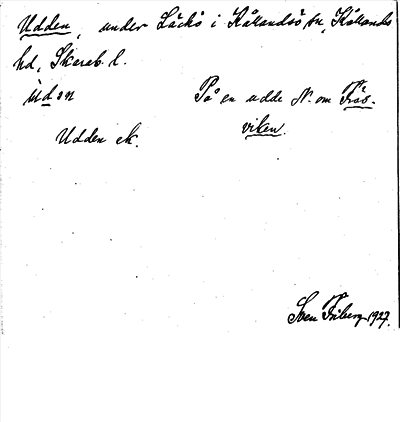 Udden, under Läckö i Kållandsö sn, Kållands
hd, Skarab. l.
ùdən På en udde N. om Frös-
viken.
Udden ek.
Sven Friberg 1927.